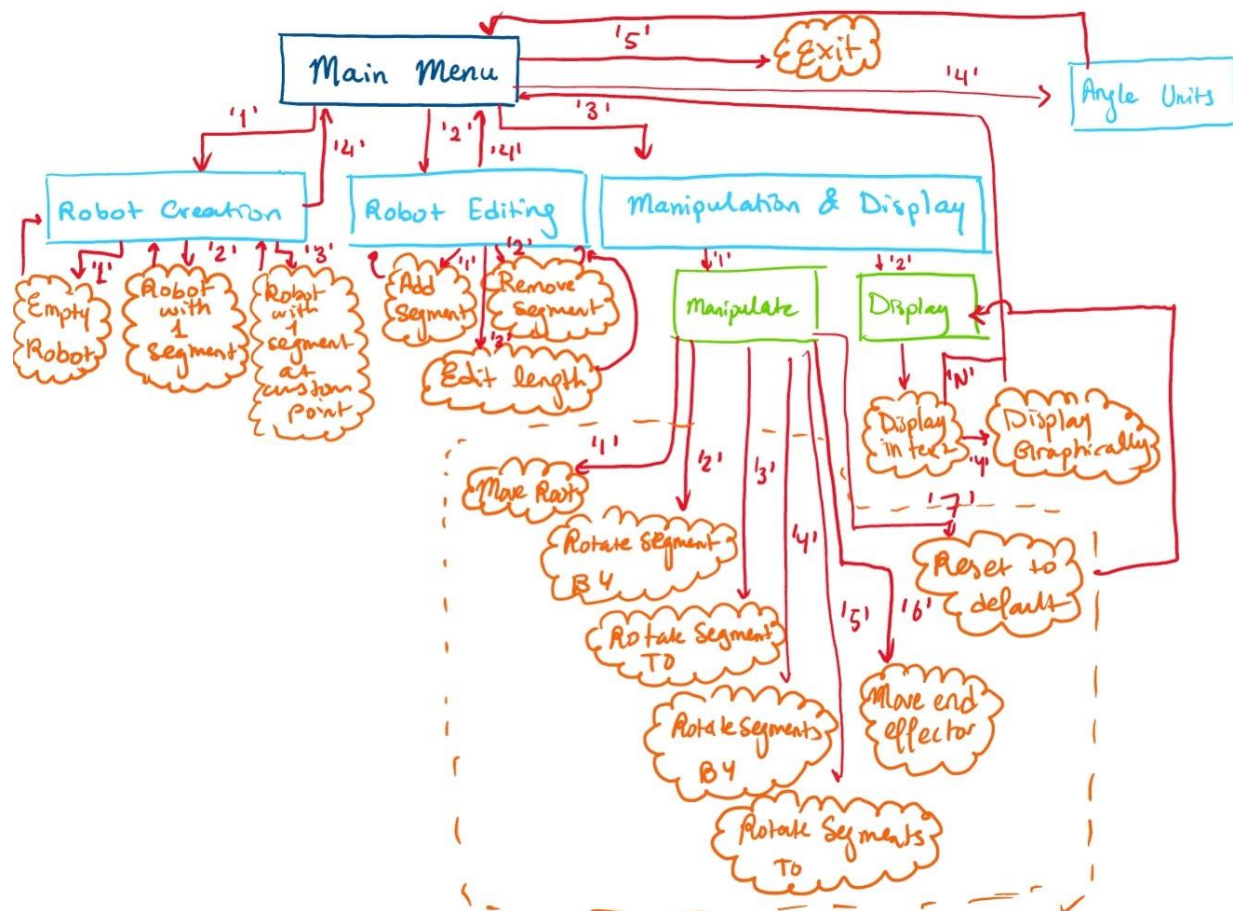 '5'
Exit
Main Menu
'4'
Angle Units
'1'
'4'
'2'
'4'
'3'
Robot Creation
Robot Editing
Manipulation & Display
'1'
'2'
'3'
'1'
'2'
'1'
'2'
Empty
Robot
Robot
with
1
segment
Robot
with
1
segment
at
custom
point
Add
Segment
Remove
Segment
'3'
Edit length
Manipulate
Display
'N'
Display
in text
'Y'
Display
Graphically
'1'
'2'
'3'
'4'
'5'
'6'
'7'
Move Root
Rotate Segment
BY
Rotate Segment
TO
Rotate Segments
BY
Rotate Segments
TO
Move end
effector
Reset to
default